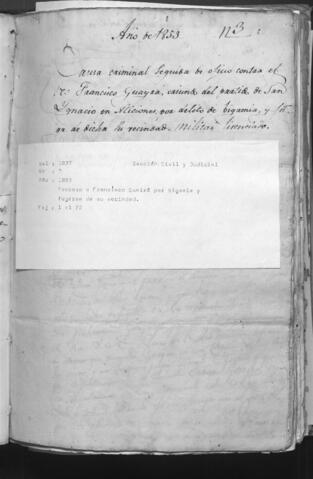 Año de 1833 N 3
Causa criminal seguida de oficio contra el
reo Francisco Guayra, del partido de San
Ygnacio en Misiones, por delito de bigamia, y fu-
ga de dicha su vecindad. Militar licenciado.
Vol : 1837 Sección Civil y Judicial
Nº :
Año : 1833
Proceso a Francisco por bigamia y
fugarse de su vecindad.
Fojas : 1 al